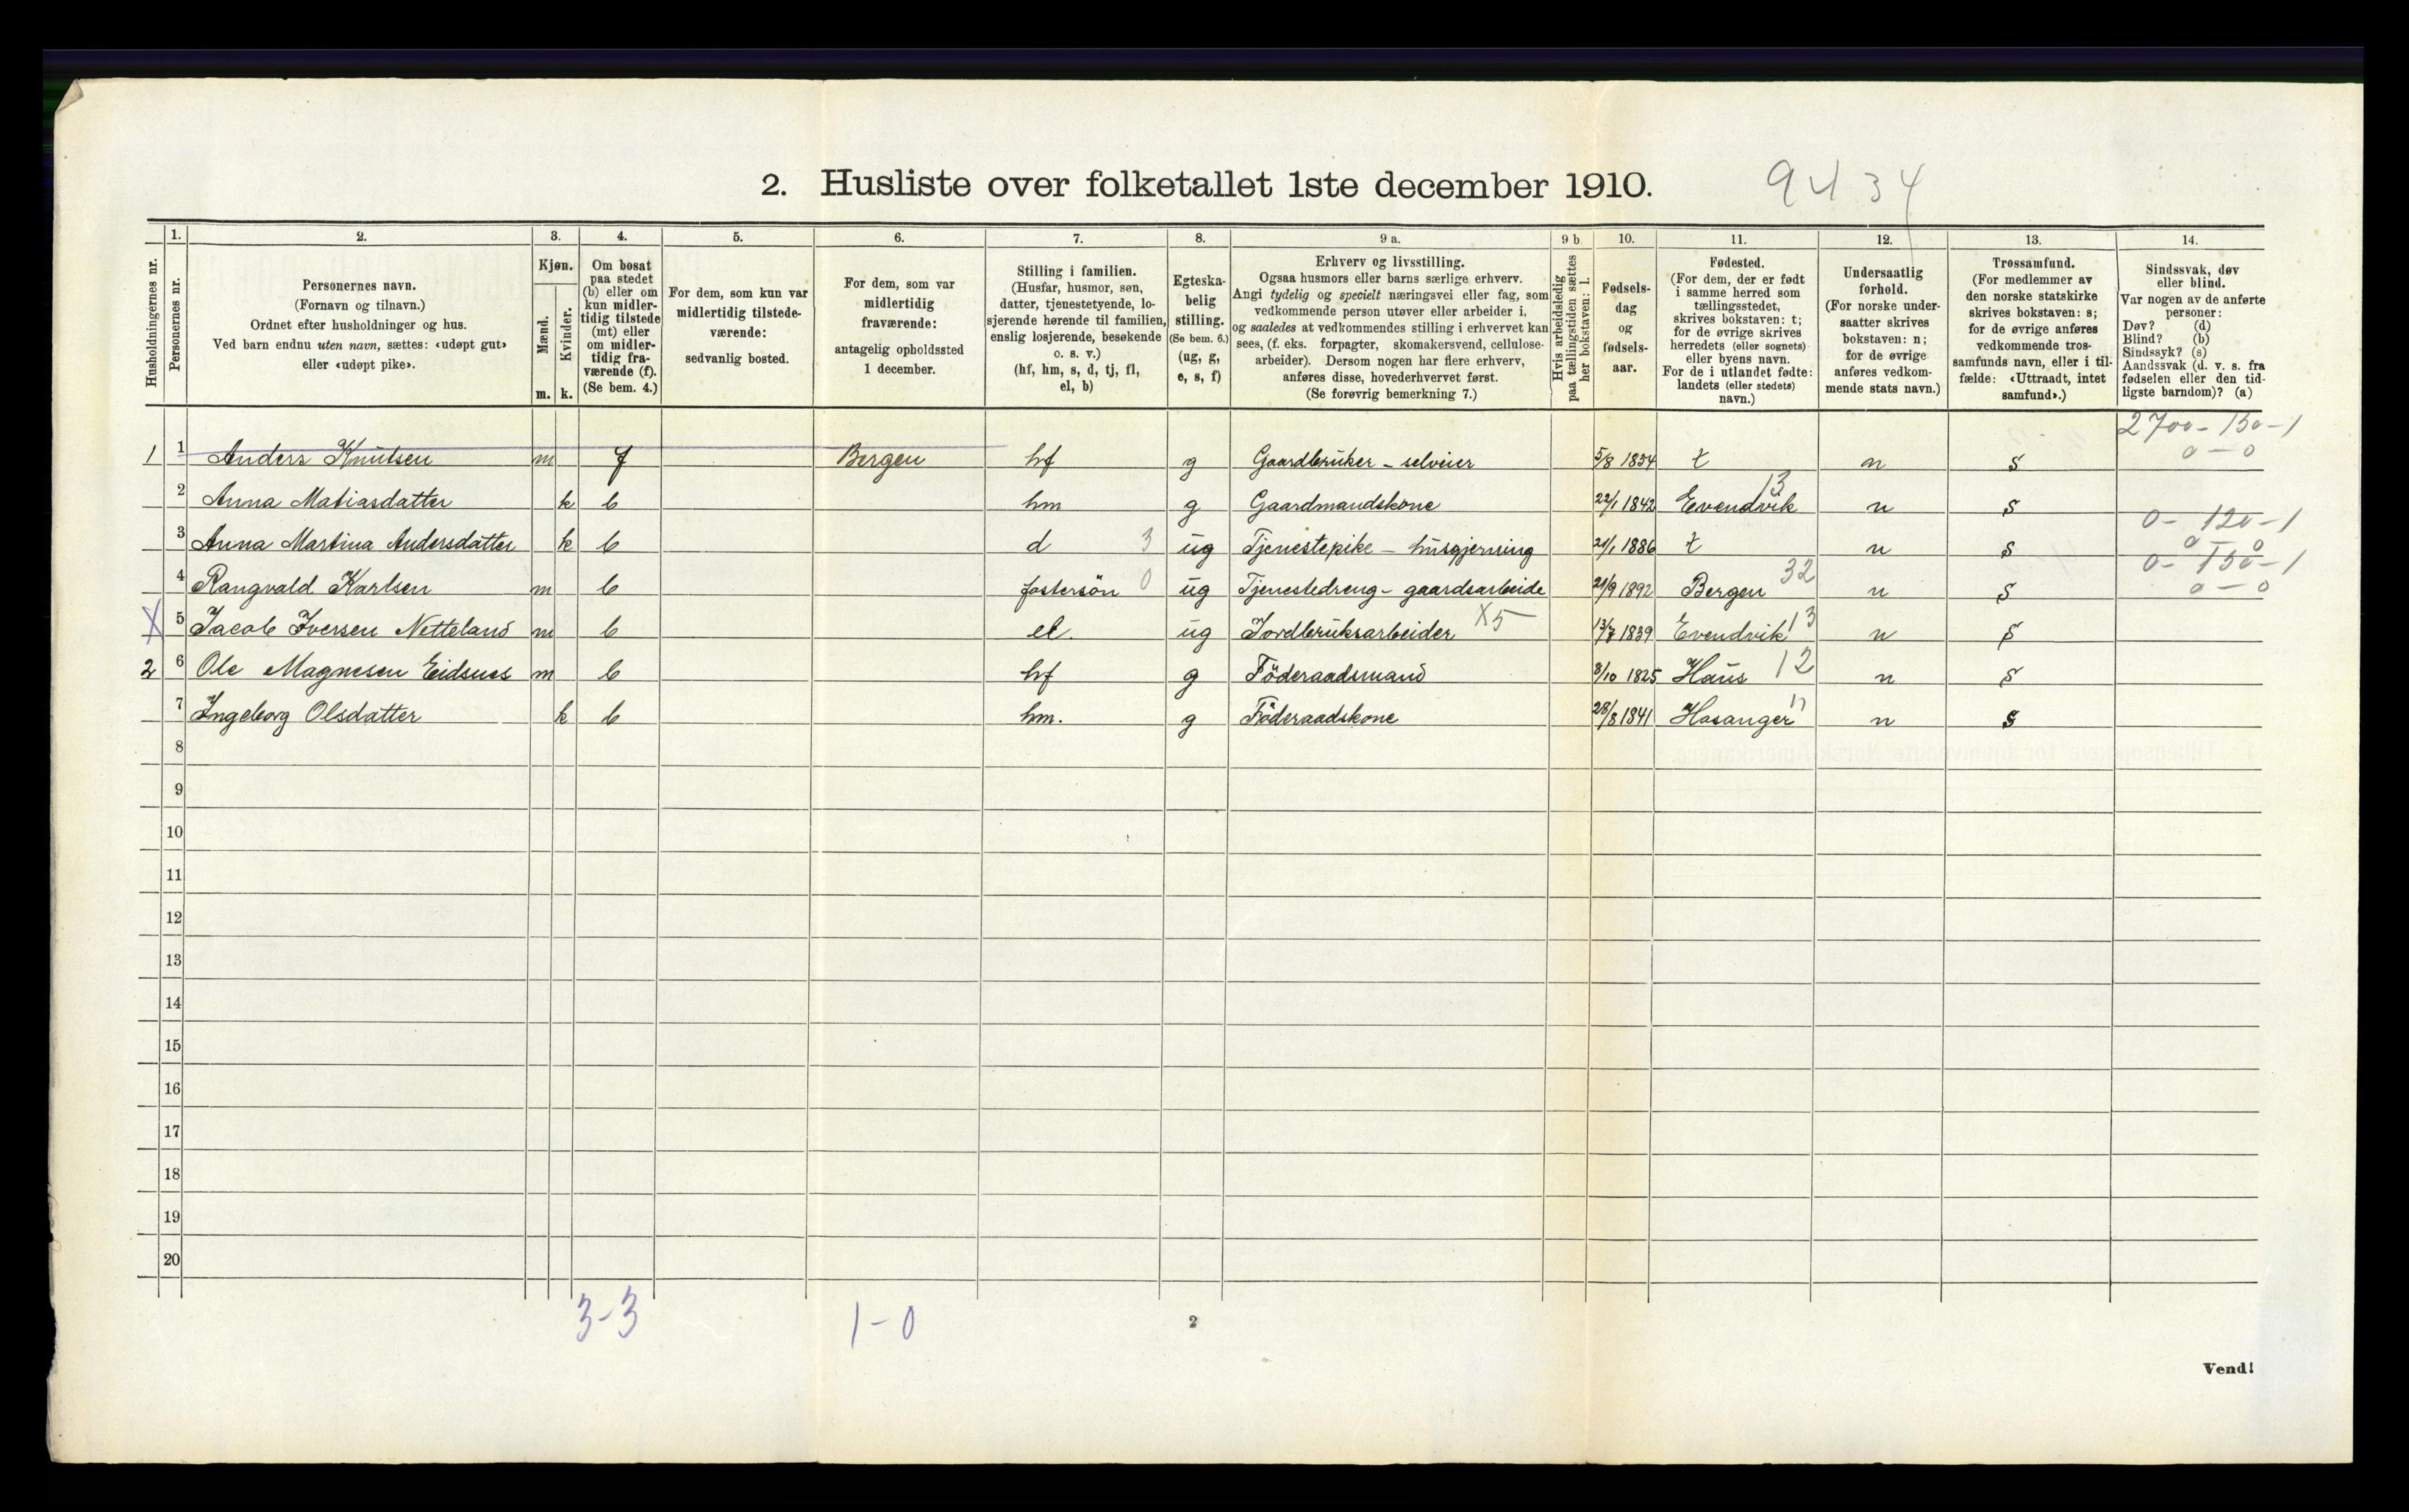 2. Husliste over folketallet 1ste december 1910. 9434
Husholdningernes nr.
1. Personernes nr.
2. Personernes navn. (Fornavn og tilnavn.) Ordnet efter husholdninger og hus. Ved barn endnu uten navn, sættes: «udøpt gut» eller «udøpt pike».
3. Kjøn. Mænd. m. Kvinder. k.
4. Om bosat paa stedet (b) eller om kun midlertidig tilstede (mt) eller om midlertidig fraværende (f). (Se bem. 4.)
5. For dem, som kun var midlertidig tilstedeværende: sedvanlig bosted.
6. For dem, som var midlertidig fraværende: antagelig opholdssted 1 december.
7. Stilling i familien. (Husfar, husmor, søn, datter, tjenestetyende, losjerende hørende til familien, enslig losjerende, besøkende o. s. v.) (hf, hm, s, d, tj, fl, el, b)
8. Egteskabelig stilling. (Se bem. 6.) (ug, g, e, s, f)
9 a. Erhverv og livsstilling. Ogsaa husmors eller barns særlige erhverv. Angi tydelig og specielt næringsvei eller fag, som vedkommende person utøver eller arbeider i, og saaledes at vedkommendes stilling i erhvervet kan sees, (f. eks. forpagter, skomakersvend, cellulosearbeider). Dersom nogen har flere erhverv, anføres disse, hovederhvervet først. (Se forøvrig bemerkning 7.)
9 b. Hvis arbeidsledig paa tællingstiden sættes her bokstaven: l.
10. Fødselsdag og fødselsaar.
11. Fødested. (For dem, der er født i samme herred som tællingsstedet, skrives bokstaven: t; for de øvrige skrives herredets (eller sognets) eller byens navn. For de i utlandet fødte: landets (eller stedets) navn.)
12. Undersaatlig forhold. (For norske undersaatter skrives bokstaven: n; for de øvrige anføres vedkommende stats navn.)
13. Trossamfund. (For medlemmer av den norske statskirke skrives bokstaven: s; for de øvrige anføres vedkommende trossamfunds navn, eller i tilfælde: «Uttraadt, intet samfund».)
14. Sindssvak, døv eller blind. Var nogen av de anførte personer: Døv? (d) Blind? (b) Sindssyk? (s) Aandssvak (d. v. s. fra fødselen eller den tidligste barndom)? (a)
1 1 Anders Knutsen m f Bergen hf g Gaardbruker - selveier 5/8 1834 t n s 2700 - 150 - 1 0 - 0
2 Anna Matiasdatter k b hm g Gaardmandskone 22/1 1842 Evendvik 13 n s
3 Anna Martina Andersdatter k b d 3 ug Tjenestepike - husgjerning 21/1 1886 t n s 0 - 120 - 1 0 - 0
4 Rangvald Karlsen m b fostersön 0 ug Tjenestedreng - gaardsarbeide 21/9 1892 Bergen 32 n s 0 - 150 - 1 0 - 0
X 5 Jacob Iversen Netteland m b el. ug Jordbruksarbeider X5 1839 Evendvik 13 n s
2 6 Ole Magnesen Eidsnes m b hf g Föderaadsmand 8/10 1825 Haus 12 n s
7 Ingeborg Olsdatter k b hm. g Föderaadskone 28/8 1841 Hosanger n s
8
9
10
11
12
13
14
15
16
17
18
19
20
3-3 1-0
2
Vend!